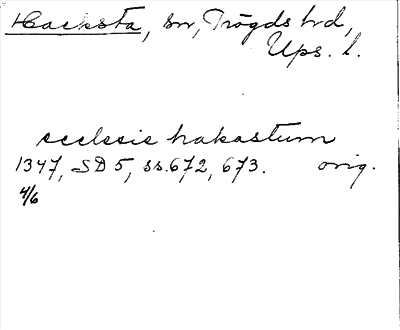 Hacksta, sn, Trögds hd,
Ups. l.
ecclesie hakastum
1347, SD 5, ss. 672, 673. orig.
4/6